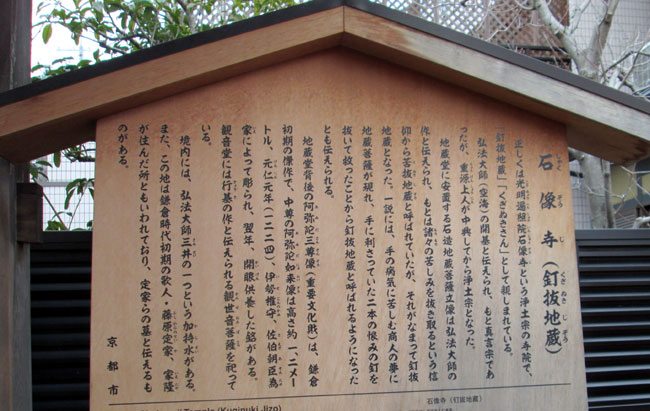 石像寺（釘抜地蔵）
正しくは光明遍照院石像寺という浄土宗の寺院で、
釘抜地蔵「くぎぬきさん」として親しまれている。
弘法大師（空海）の開基と伝えられ、もと真言宗であ
ったが、重源上人が中興してから浄土宗となった。
地蔵堂に安置する石造地蔵菩薩立像は弘法大師の
作と伝えられ、もとは諸々の苦しみを抜き取るという信
仰から苦抜地蔵と呼ばれていたが、それがなまって釘抜
地蔵となった。一説には、手の病気に苦しむ商人の夢に
地蔵菩薩が現れ、手に刺さっていた二本の恨みの釘を
抜いて救ったことから釘抜地蔵と呼ばれるようになった
とも伝えられる。
地蔵堂背後の阿弥陀三尊像（重要文化財）は、鎌倉
初期の傑作で、中尊の阿弥陀如来像は高さ約一、二メー
トル、元仁元年（一二二四）、伊勢権守、佐伯朝臣為
家によって彫られ、翌年、開眼供養した銘がある。
観音堂には行基の作と伝えられる観世音菩薩を祀って
いる。
境内には、弘法大師三井の一つという加持水がある。
また、この地は鎌倉時代初期の歌人・藤原定家、家隆
が住んだ所ともいわれており、定家らの墓と伝えるも
のがある。
京都市
石像寺（釘抜地蔵）
(Kuginuki Jizo)